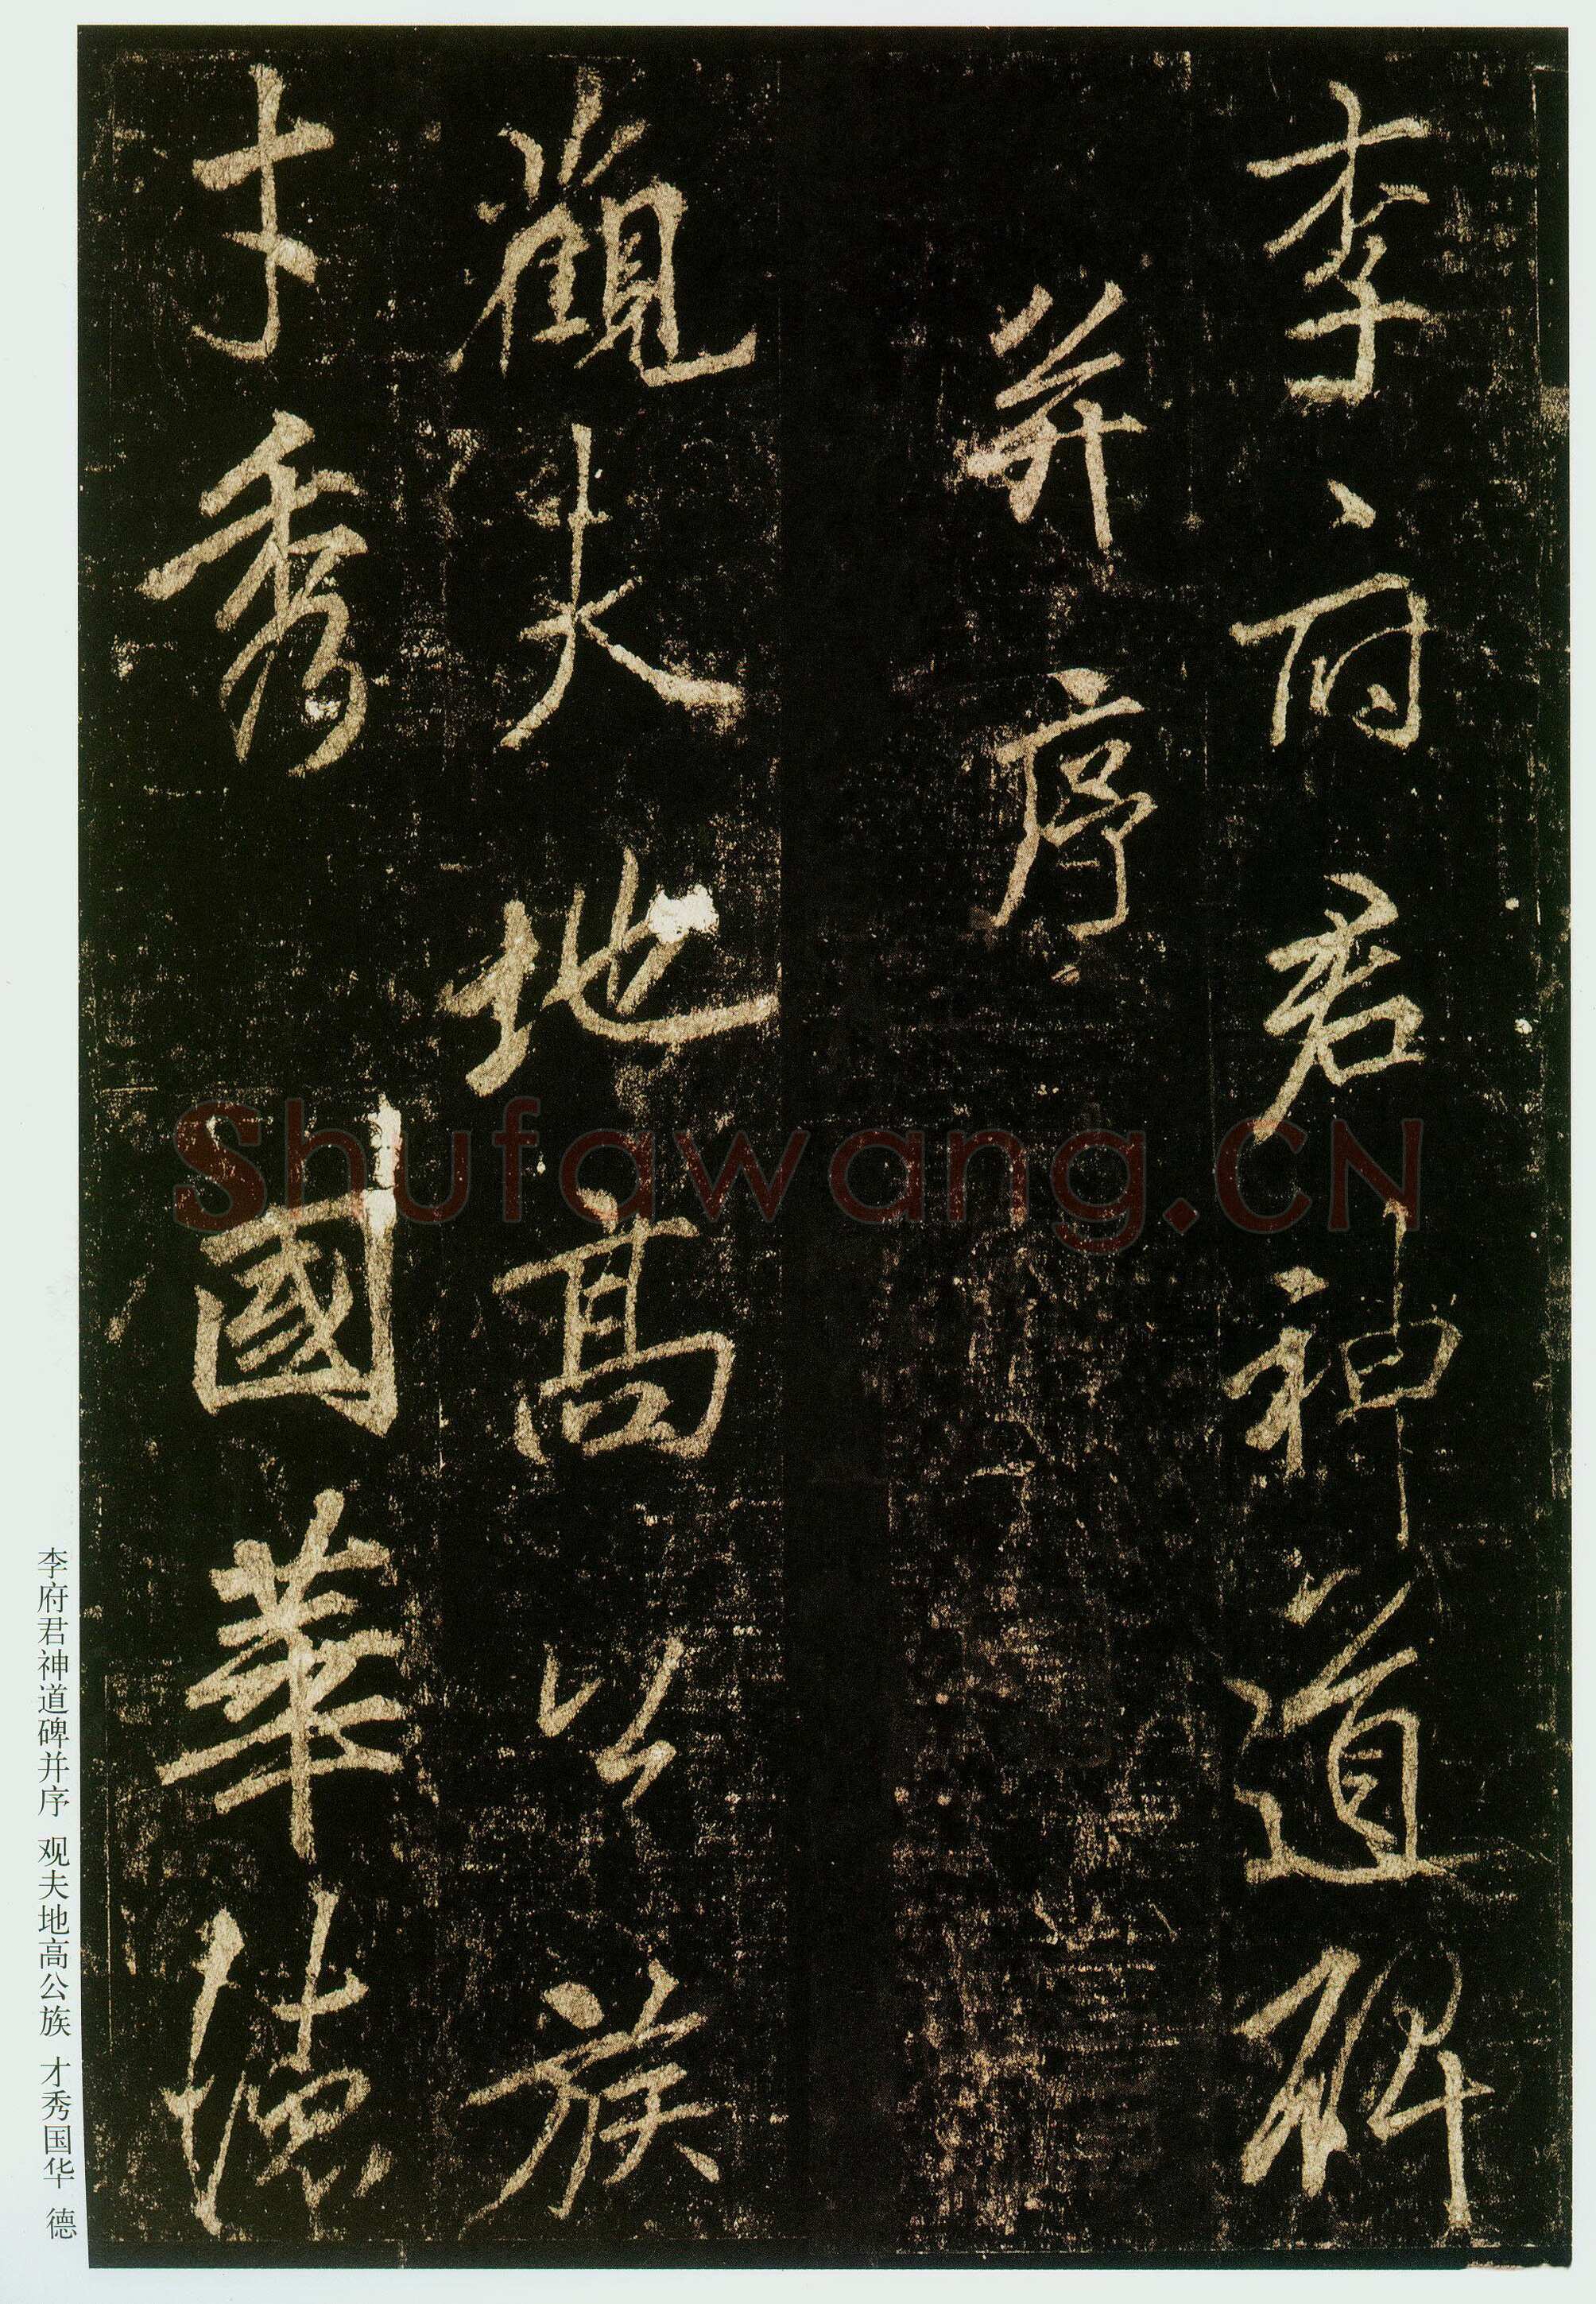 李府君神道碑
并序
觀夫地高公族
才秀國華德
李府君神道碑并序 观夫地高公族 才秀国华 德
Shufawang.CN